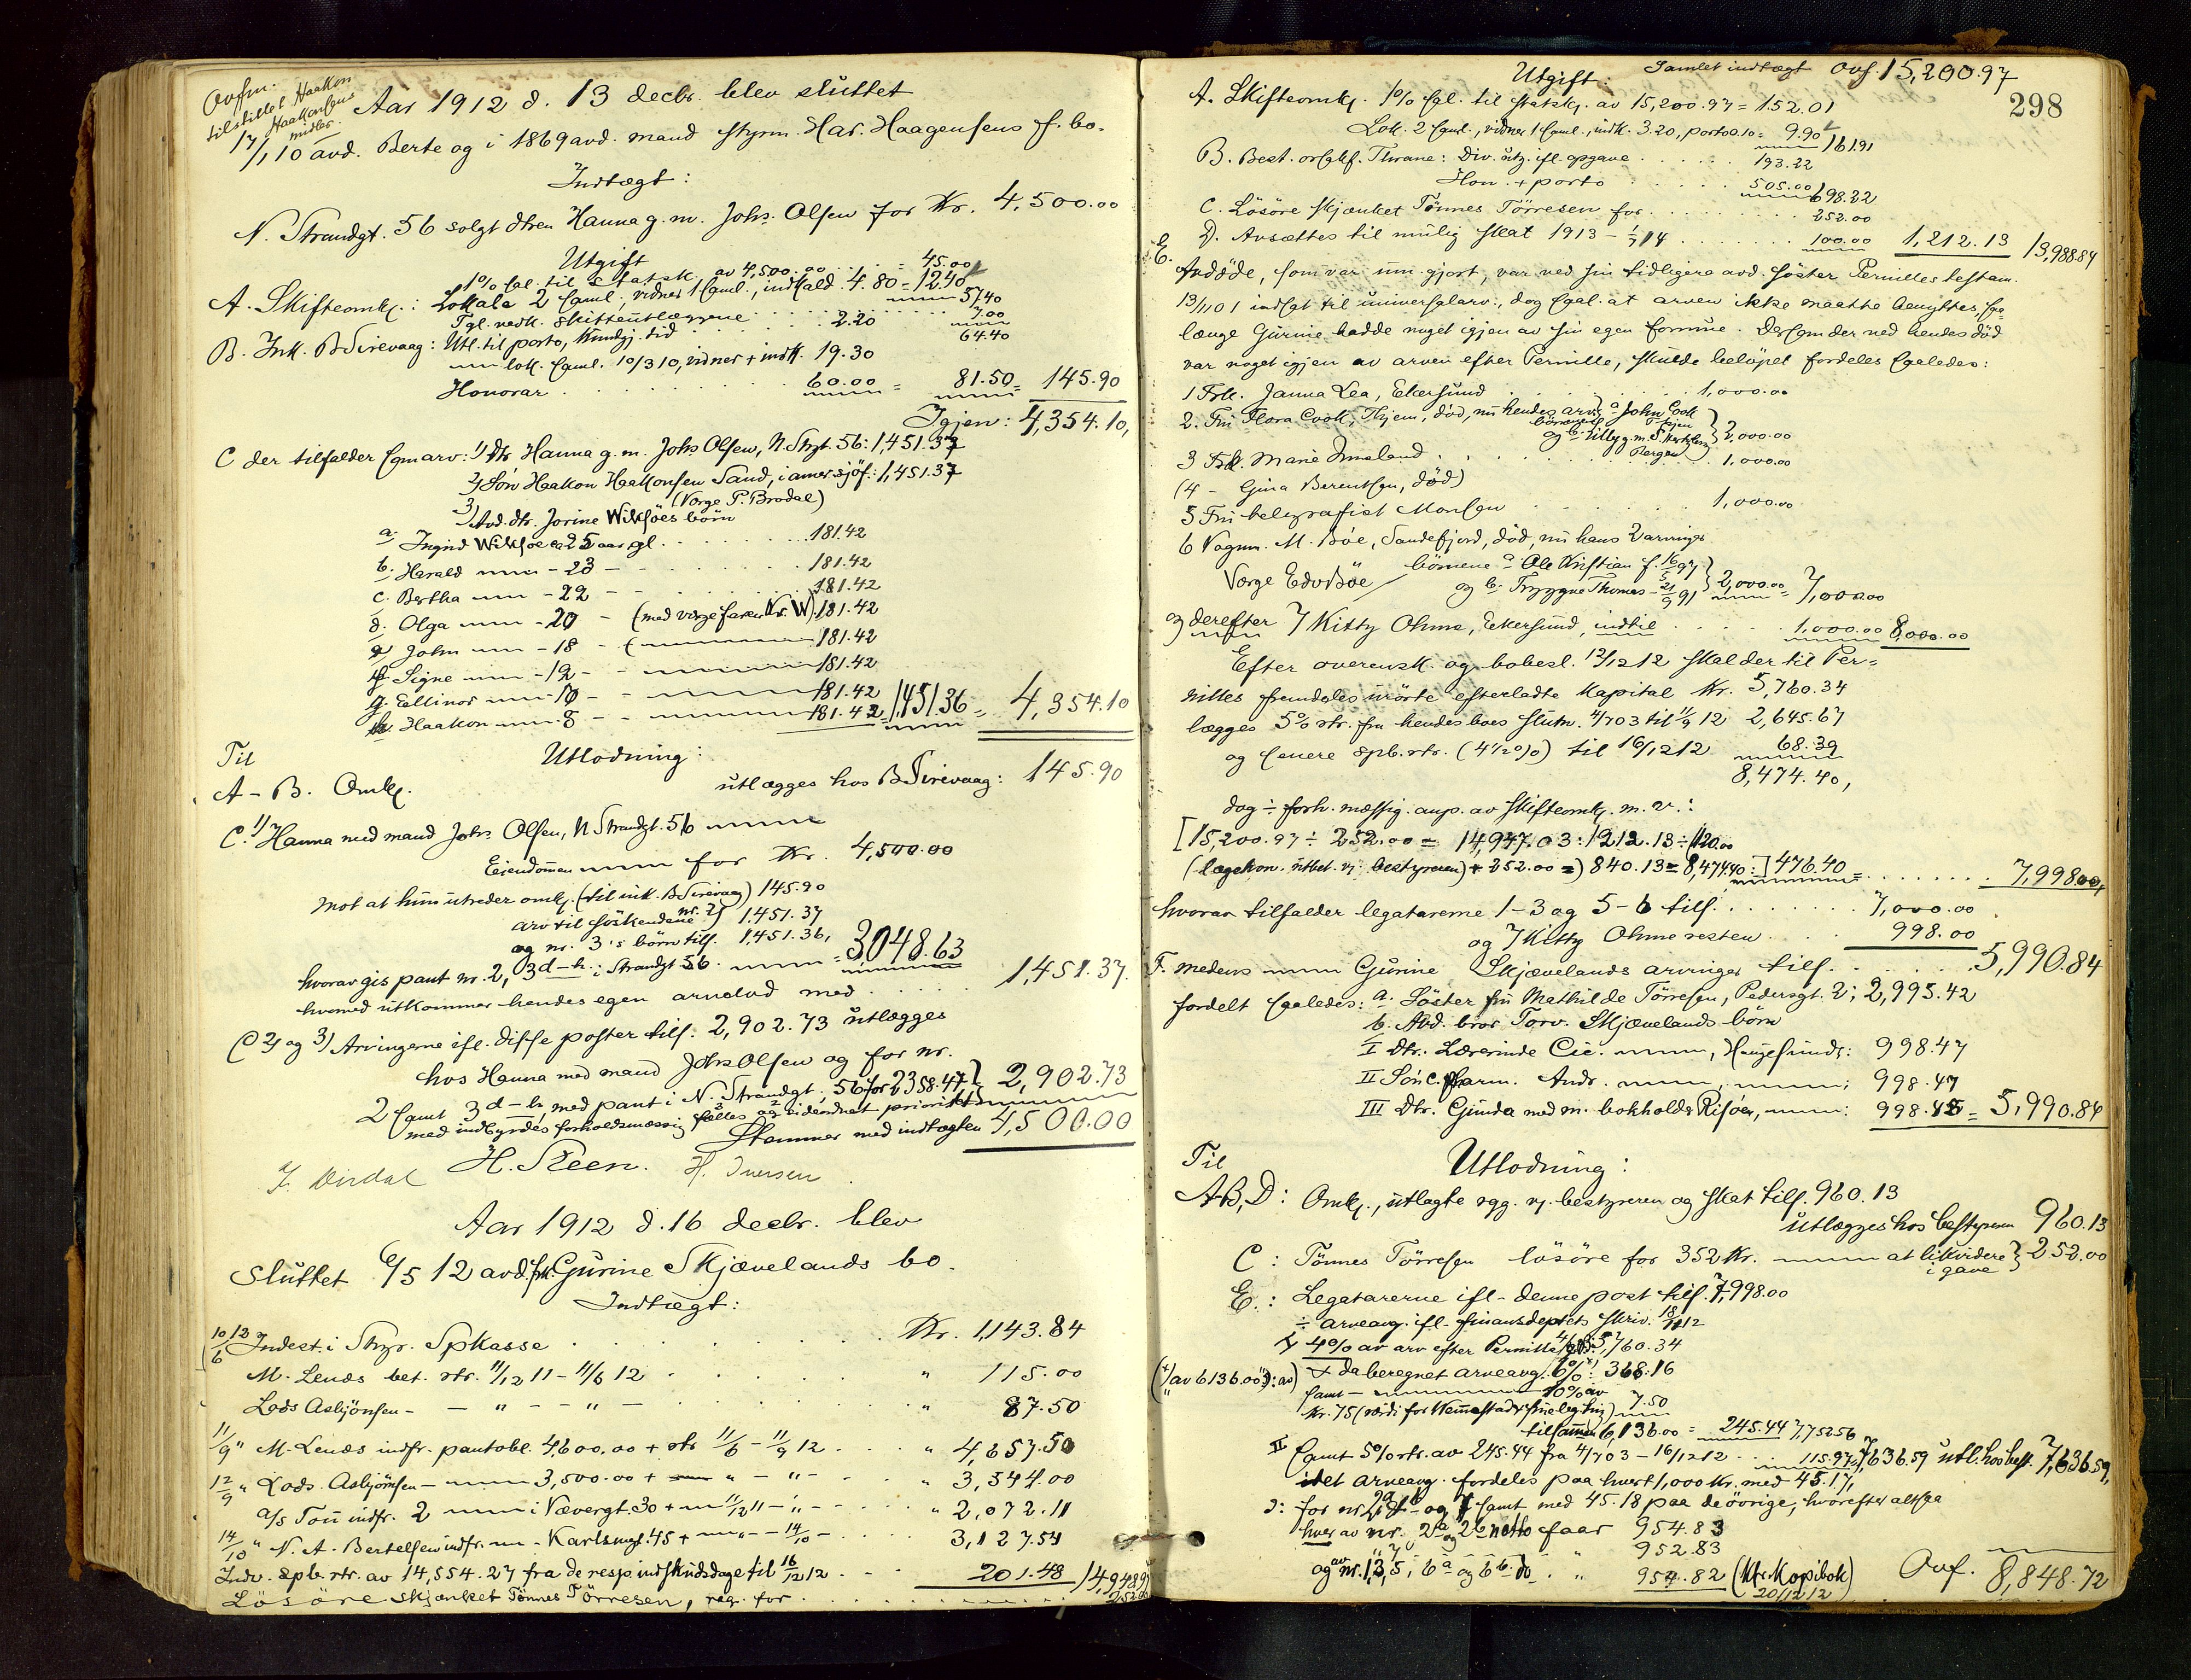 Ovfm.
tilstillet Haakon
Haakonsens
midler.
Aar 1912 d. 13 decbr. blev sluttet
17/1 10 avd. Berte og i 1869 avd. mand styrm. Har. Haagensens f. bo.
Indtægt:
N. Strandgt. 56 solgt dtren Hanna g. m. Johs. Olsen for Kr. 4,500.00
Utgift
1% sal. til Statsk. av 4,500.00 = 45.00
A. Skifteomk.: Lokale 2 saml., vidner 1 saml., indkald. 4.80 = 12.40
57.40
Tgl. vedk. skifteutlæggene 7.00
B. Ink. B Sirevaag: Utl. til porto, kundgj. tid 2.20 64.40
lok. saml. 10/3 10, vidner + indk. 19.30
Honorar 60.00 = 81.50 = 145.90
Igjen: 4,354.10,
C der tilfalder som arv: 1) Dtr Hanna g. m. Johs Olsen, N. Strgt. 56: 1,451.37
2) Søn Haakon Haakonsen Sand, i amer. sjöf.: 1,451.37
(Verge P. Brodal)
3) Avd. dtr. Jorine Wiksöes börn
a. Ingrid Wiksøe ca 25 aar gl. 181.42
b. Harald - 23 - 181.42
c. Bertha - 22 - 181.42
d. Olga - 20 - (med verge faren Kr. W) 181.42
e John - 18 - 181.42
f. Signe - 12 - 181.42
g. Ellinor - 10 - 181.42
h. Haakon - 8 - 181.42 = 1,451.36 = 4,354.10
Til Utlodning:
A - B. Omk. utlægges hos B Sirevaag: 145.90
C. 1) Hanna med mand Johs Olsen, N Strandgt. 56
Eiendommen for Kr. 4,500.00
Mot at hun utreder omk. (til ink. B Sirevaag) 145.90
arv til søskendene nr. 2) 1,451.37
og nr. 3's børn tils. 1,451.36,
hvorav gis pant nr. 2, 3 d-h i Strandgt 56. = 3048.63
hvorved utkommer hendes egen arvelod med 1,451.37.
C 2) og 3) Arvingerne ifl. disse poster tils. 2,902.73 utlægges
hos Hanna med mand Johs Olsen og for nr.
2 samt 3 d-h, med pant i N. Strandgt. 56 for 2358.47, 2,902.73
med indbyrdes forholdsmæssig fælles og sideordnet prioritet
Stemmer med indtægten 4,500.00
J. Dirdal H. Steen. H. Iversen
Aar 1912 d. 16 decbr. blev
sluttet 6/5 12 avd. frk. Gurine Skjævelands bo.
Indtægt:
10/6 12 Indest. i Stvgr. Spkasse Kr. 1,143.84
M. Lends bet. rtr. 11/12 11 - 11/6 12 " 115.00
Lods Asbjönsen - " - " - " 87.50
11/9 " M. Lends indfr. pantobl. 4,600.00 + rtr 11/6 - 11/9 12 " 4,657.50
12/9 " Lods. Asbjörnsen - 3,500.00 + " - " - " 3,544.00
a/s Tou indfr. 2 i Vævergt. 30 + 11/12 11 - " - " 2,072.11
14/10 " N. A. Bertelsen indfr. - Karlsmgt. 45 + - 14/10 - 3,127.54
Indv. spb. rtr. av 14,554.27 fra de resp. indskudsdage til 16/12 12 201.48 14,948.97
Løsöre skjænket Tönnes Törresen, reg. for 252.00
Utgift: Samlet indtægt Ovf. 15,200.97
298
A. Skifteomk. 1% sal. til statsk. av 15,200.97 = 152.01
Lok. 2 saml., vidner 1 saml., indk. 3.20, porto 0.10 = 9.90 161.91
B. Best. orsakf. Thrane: Div. utg. ifl. opgave 193.22
Hon. + porto 505.00 698.22
C. Lösöre skjænket Tönnes Törresen for 252.00
D. Avsættes til mulig skat 1913 - 1/7 14 100.00 1,212.13 13,988.84
E. Avdöde, som var um. gjort, var ved sin tidligere avd. söster Pernilles testam.
13/1 01 indsat til universalarv., dog saal. at arven ikke maatte benyttes, saa-
længe Gurine hadde noget igjen av sin egen formue. Dersom der ved hendes död
var noget igjen av arven efter Pernille, skulde belöpet fordeles saaledes:
1 Frk. Janna Lea, Ekersund 1,000.00
2. Fru Flora Cook, Thjem, död, nu hendes arv. a John Cook
og b. Lilly g. m. S. Bergen 2,000.00
3 Frk. Marie Imeland 1,000.00
(4 - Gina Berentsen, död)
5 Fru telegrafist Monsen 1,000.00
6 Vognm. M. Böe, Sandefjord, död, nu hans 2 arvinger
Verge Edv Böe börnene a. Ole Kristian f. 16/5 97
og b. Tryggve Thomas - 21/9 91 2,000.00 = 7,000.00
og derefter 7 Kitty Ohme, Ekersund, indtil 1,000.00 8,000.00
Efter overensk. og bobesl. 12/12 12 skal der til Per-
nilles fremdeles urörte efterladte kapital Kr. 5,760.34
lægges 5% rtr. fra hendes boes slutn. 4/7 03 til 11/9 12 2,645.67
og senere spb. rtr. (4 1/2 %) til 16/12 12 68.39
8,474.40,
dog ÷ forh. mæssig anp. av skifteomk. m. v.:
[15,200.97 ÷ 252.00 = 14,947.03 : 1212.13 ÷ 120.00
(lægekon. utbet. v. bestyreren) + 252.00 =) 840.13 = 8,474.40 :] 476.40 = 7,998.00,
hvorav tilfalder legatarerne 1-3 og 5-6 tils. 7,000.00
og 7 Kitty Ohme resten 998.00
F. medens Gurine Skjævelands arvinger tils. 5,990.84
fordelt saaledes: a. Söster fru Mathilde Törresen, Pedersgt. 2; 2,995.42
b. Avd. bror Torv. Skjævelands börn
I Dtr. Lærerinde Cic. , Haugesund: 998.47
II Sön c. farm. Andr. , ; 998.47
III Dtr. Gunda med m. bokholder Risöen, : 998.48 = 5,990.84
Til Utlodning:
A.B,D: Omk., utlagte og. v. bestyreren og skat tils. 960.13
utlægges hos bestyreren 960.13
C: Tönnes Törresen lösöre for 352 Kr. at likvidere i gave 252.00
E.: Legatarerne ifl. denne post tils. 7,998.00
÷ arveavg. ifl. finansdeptets skriv. 18/11 12
4% av arv efter Pernille 4/7 03: 5,760.34
(av 6136.00 ɔ: av) + da beregnet arveavg. 6%: 368.16
samt 10% av 7.50
Kr. 75
tilsammen 6,136.00 = 245.44 7,752.56
II samt 5% rtr. av 245.44 fra 4/7 03 - 16/12 12 115.97 = 7,636.59 utl. hos best. 7,636.59,
idet arveavg. fordeles paa hvert 1,000 Kr. med 45.17,
ɔ: for nr. og 7 samt med 45.18 paa de övrige, hvorefter altsaa
hver av nr. 2a og 2b netto faar 954.83
" 7 " 952.83
og av nr. 1, 3, 5, 6a og 6b do. " 954.82 (Kfr. Kopibok)
20/12 12
Ovf. 8,848.72